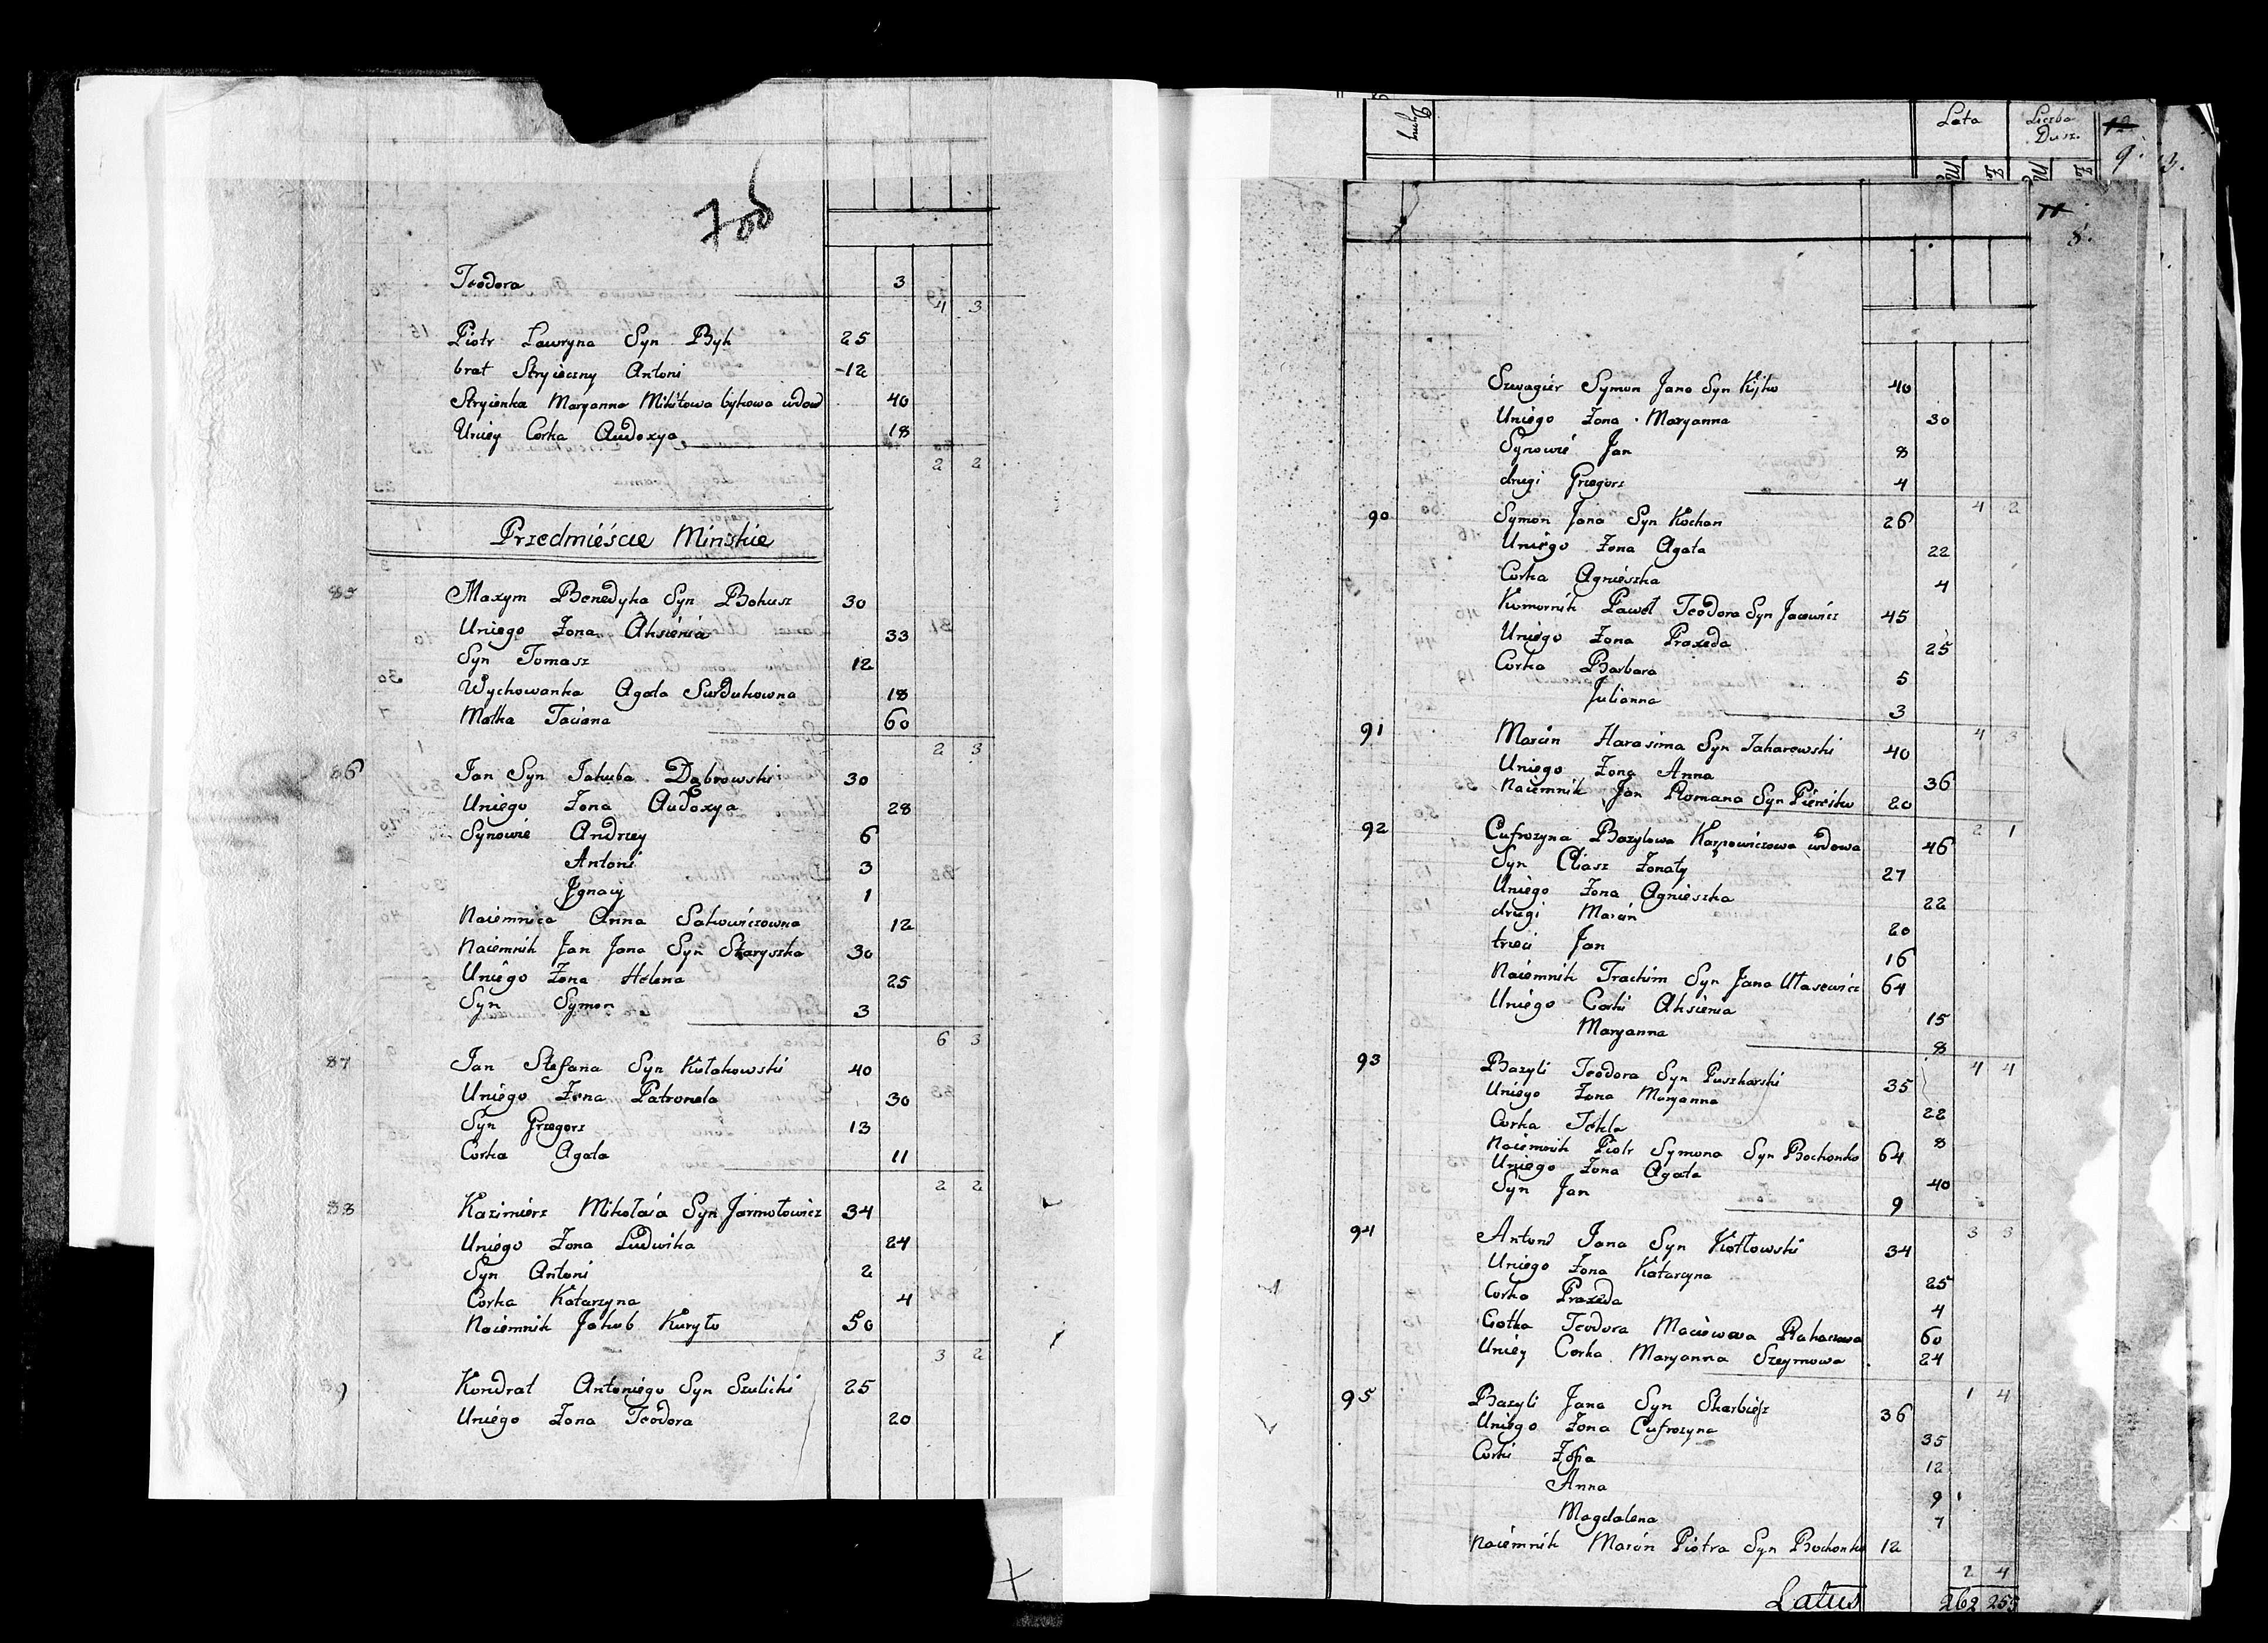 Teodora 3
4 3
Piotr Lawryna Syn Byk 25
brat Stryieczny Antoni -12
Stryienka Maryanna Mikitowa bykowa wdow 40
Uniey Corka Audoxya 18
2 2
Przedmieście Minskie
85 Maxym Benedykta Syn Bohusz 30
Uniego Zona Aksienia 33
Syn Tomasz 12
Wychowanka Agata Surdukowna 18
Matka Taciana 60
2 3
86 Jan Syn Jakuba Dąbrowski 30
Uniego Zona Audoxya 28
Synowie Andrzey 6
Antoni 3
Jgnacy 1
Naiemnica Anna Sakowiczowna 12
Naiemnik Jan Jana Syn Staryszka 30
Uniego Zona Helena 25
Syn Symon 3
6 3
87 Jan Stefana Syn Kułakowski 40
Uniego Zona Patronela 30
Syn Grzegorz 13
Corka Agata 11
2 2
88 Kazimierz Mikołaia Syn Jarmołowicz 34
Uniego Zona Ludwika 24
Syn Antoni 2
Corka Katarzyna 4
Naiemnik Jakub Kuryło 50
3 2
Kondrat Antoniego Syn Szulicki 25
Uniego Zona Teodora 20
Dymy Lata Liczba Dusz. 12
9.
13.
11
8.
Szwagier Symon Jana Syn Kijko 40
Uniego Zona Maryanna 30
Synowie Jan 8
drugi Grzegorz 4
4 2
90 Symon Jana Syn Kochan 26
Uniego Zona Agata 22
Corka Agnieszka 4
Komornik Paweł Teodora Syn Jacewicz 45
Uniego Zona Praxeda 25
Corka Barbara 5
Julianna 3
4 3
91 Marcin Harasima Syn Taharewski 40
Uniego Zona Anna 36
Naiemnik Jan Romana Syn 20
2 1
92 Eufrozyna Bazylowa Karpowiczowa wdowa 46
Syn Eliasz Zonaty 27
Uniego Zona Agnieszka 22
drugi Marcin 20
trzeci Jan 16
Naiemnik Trachim Syn Jana Ułasewicz 64
Uniego Corki Aksienia 15
Maryanna 8
4 4
93 Bazyli Teodora Syn Puszkarski 35
Uniego Zona Maryanna 22
Corka Tekla 8
Naiemnik Piotr Symona Syn Bochonko 64
Uniego Zona Agata 40
Syn Jan 9
3 3
94 Antoni Jana Syn Kotłowski 34
Uniego Zona Katarzyna 25
Corka Praxeda 4
Ciotka Teodora Maciewowa 60
Uniey Corka Maryanna Szeymowa 24
1 4
95 Bazyli Jana Syn 36
Uniego Zona Eufrozyna 35
Corki Zofia 12
Anna 9
Magdalena 7
Naiemnik Marcin Piotra Syn Bochonko 12
2 4
Latus 262 255